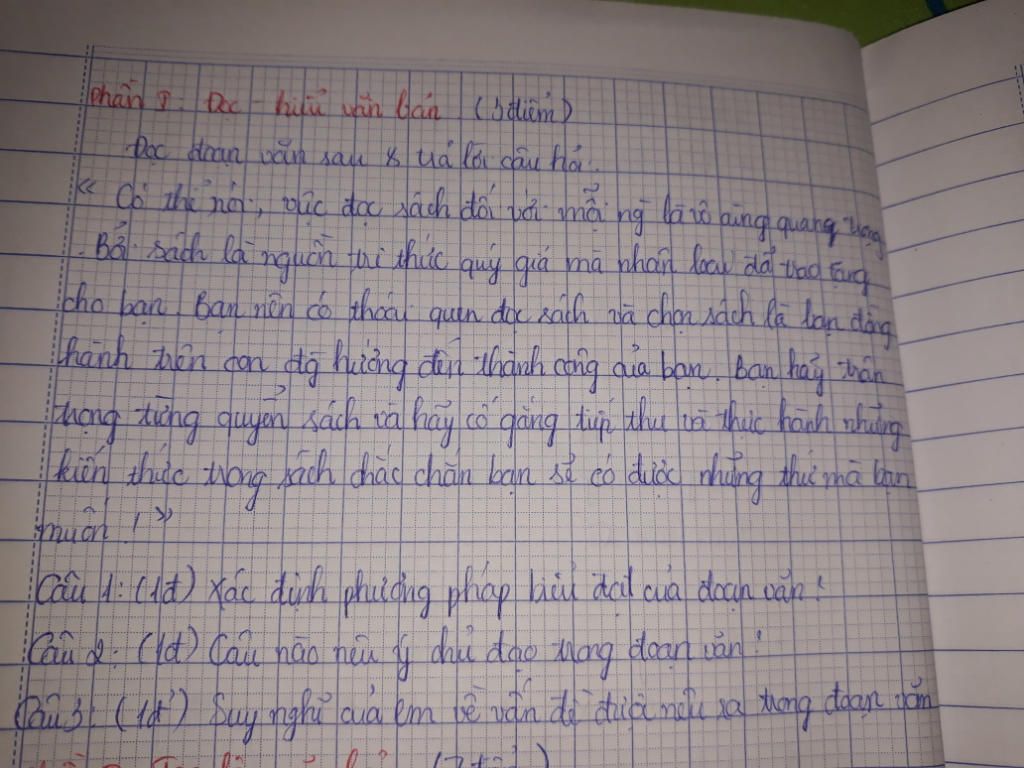 Phần I: Đọc - hiểu văn bản (3 điểm)
Đọc đoạn văn sau & trả lời câu hỏi.
" Có thể nói, việc đọc sách đối với mỗi ng là vô cùng quang trọng
. Bởi sách là nguồn tri thức quý giá mà nhân loại đã trao tặng
cho bạn. Bạn nên có thói quen đọc sách và chọn sách là bạn đồng
hành trên con đg hướng đến thành công của bạn. Bạn hãy trân
trọng từng quyển sách và hãy cố gắng tiếp thu và thực hành những
kiến thức trong sách chắc chắn bạn sẽ có được những thứ mà bạn
muốn! "
Câu 1: (1đ) Xác định phương pháp biểu đạt của đoạn văn!
Câu 2: (1đ) Câu nào nêu ý chủ đạo trong đoạn văn!
Câu 3: (1đ) Suy nghĩ của em về vấn đề được nêu ra trong đoạn văn